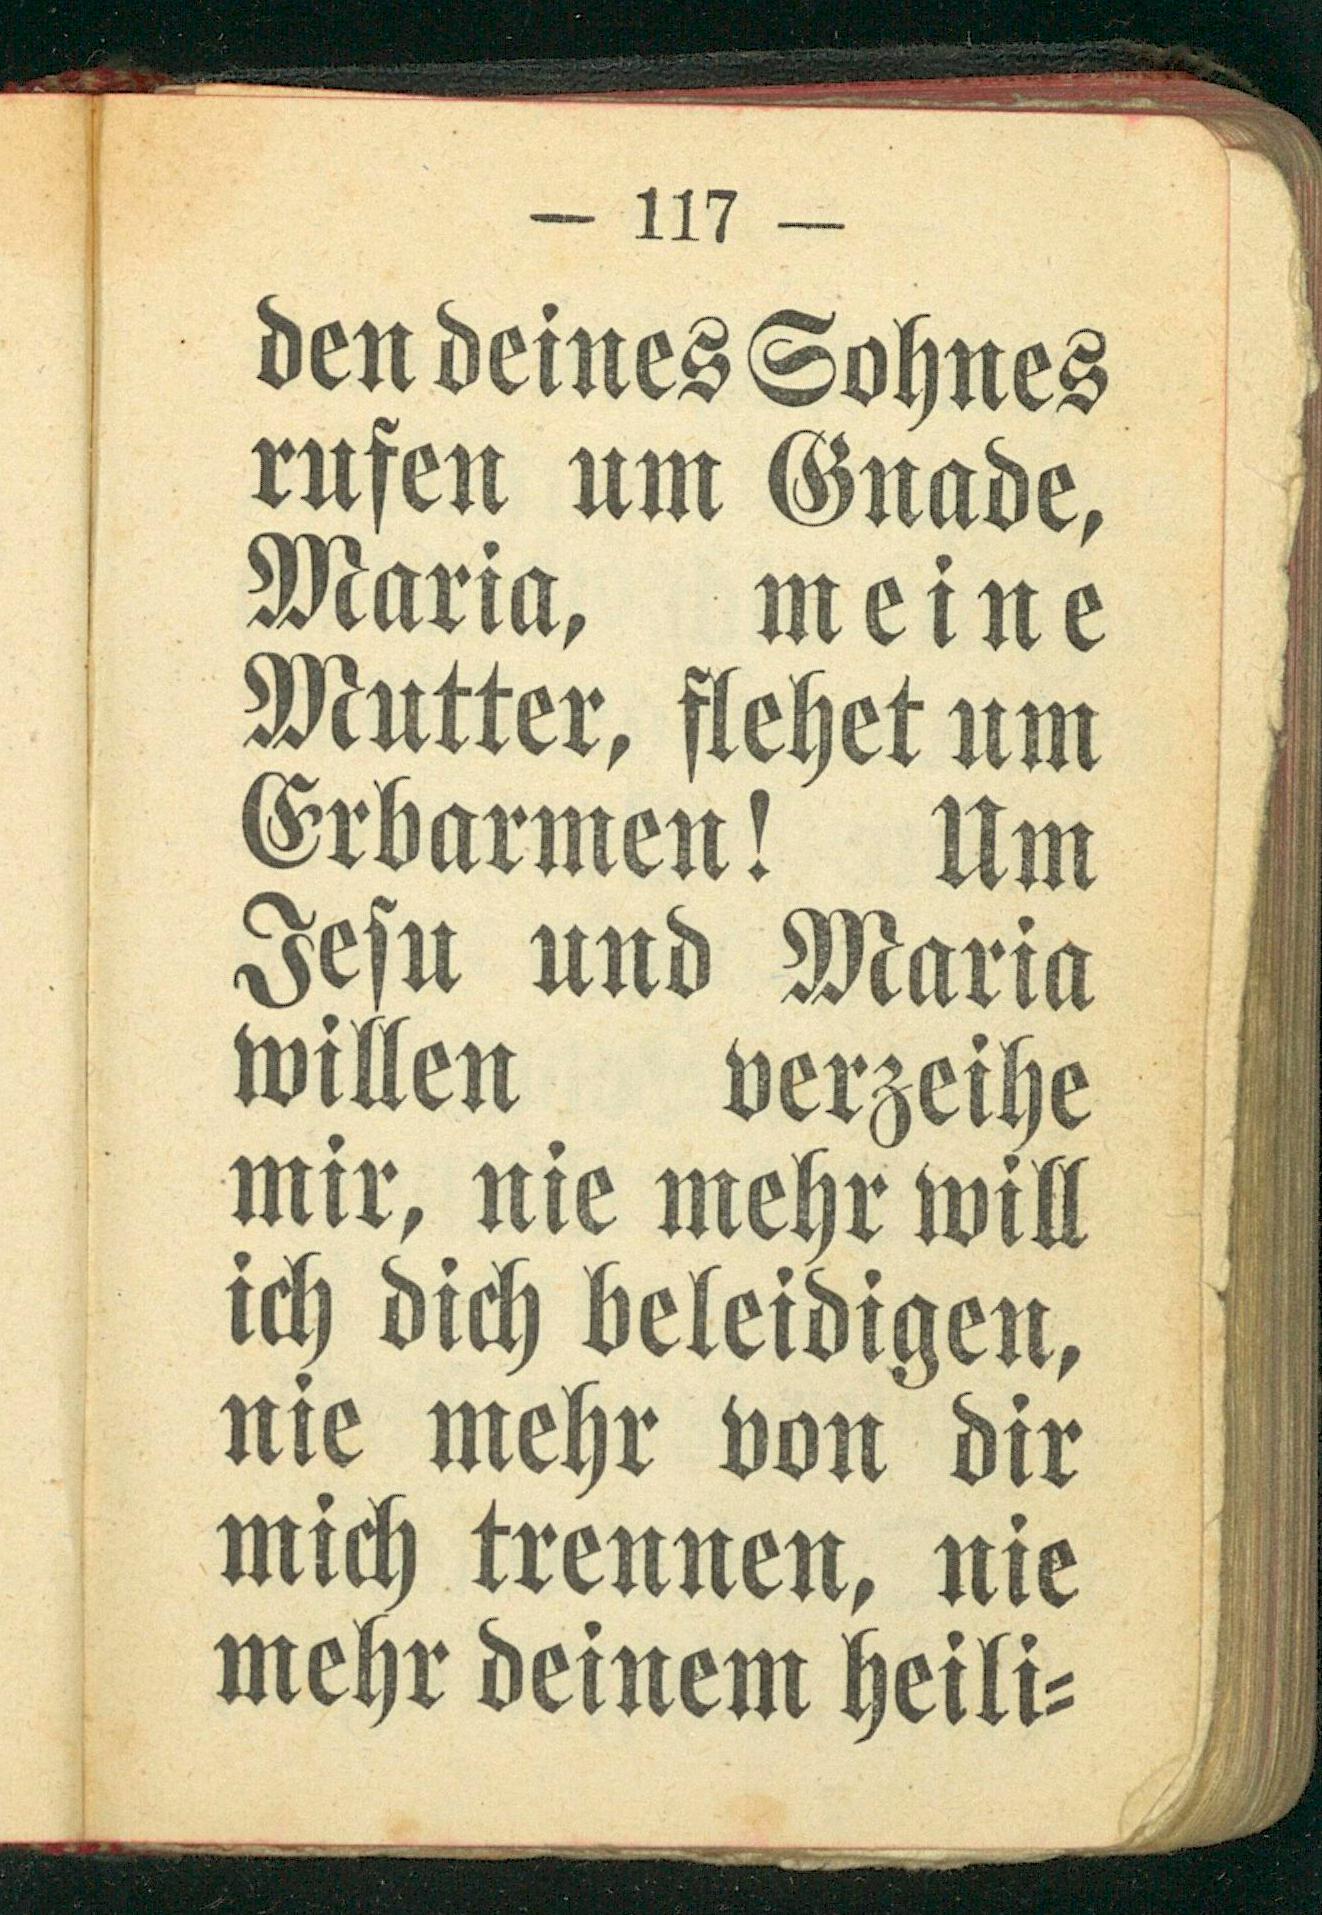 — 117 —
den deines Sohnes
rufen um Gnade,
Maria, meine
Mutter, flehet um
Erbarmen! Um
Jesu und Maria
willen verzeihe
mir, nie mehr will
ich dich beleidigen,
nie mehr von dir
mich trennen, nie
mehr deinem heili-